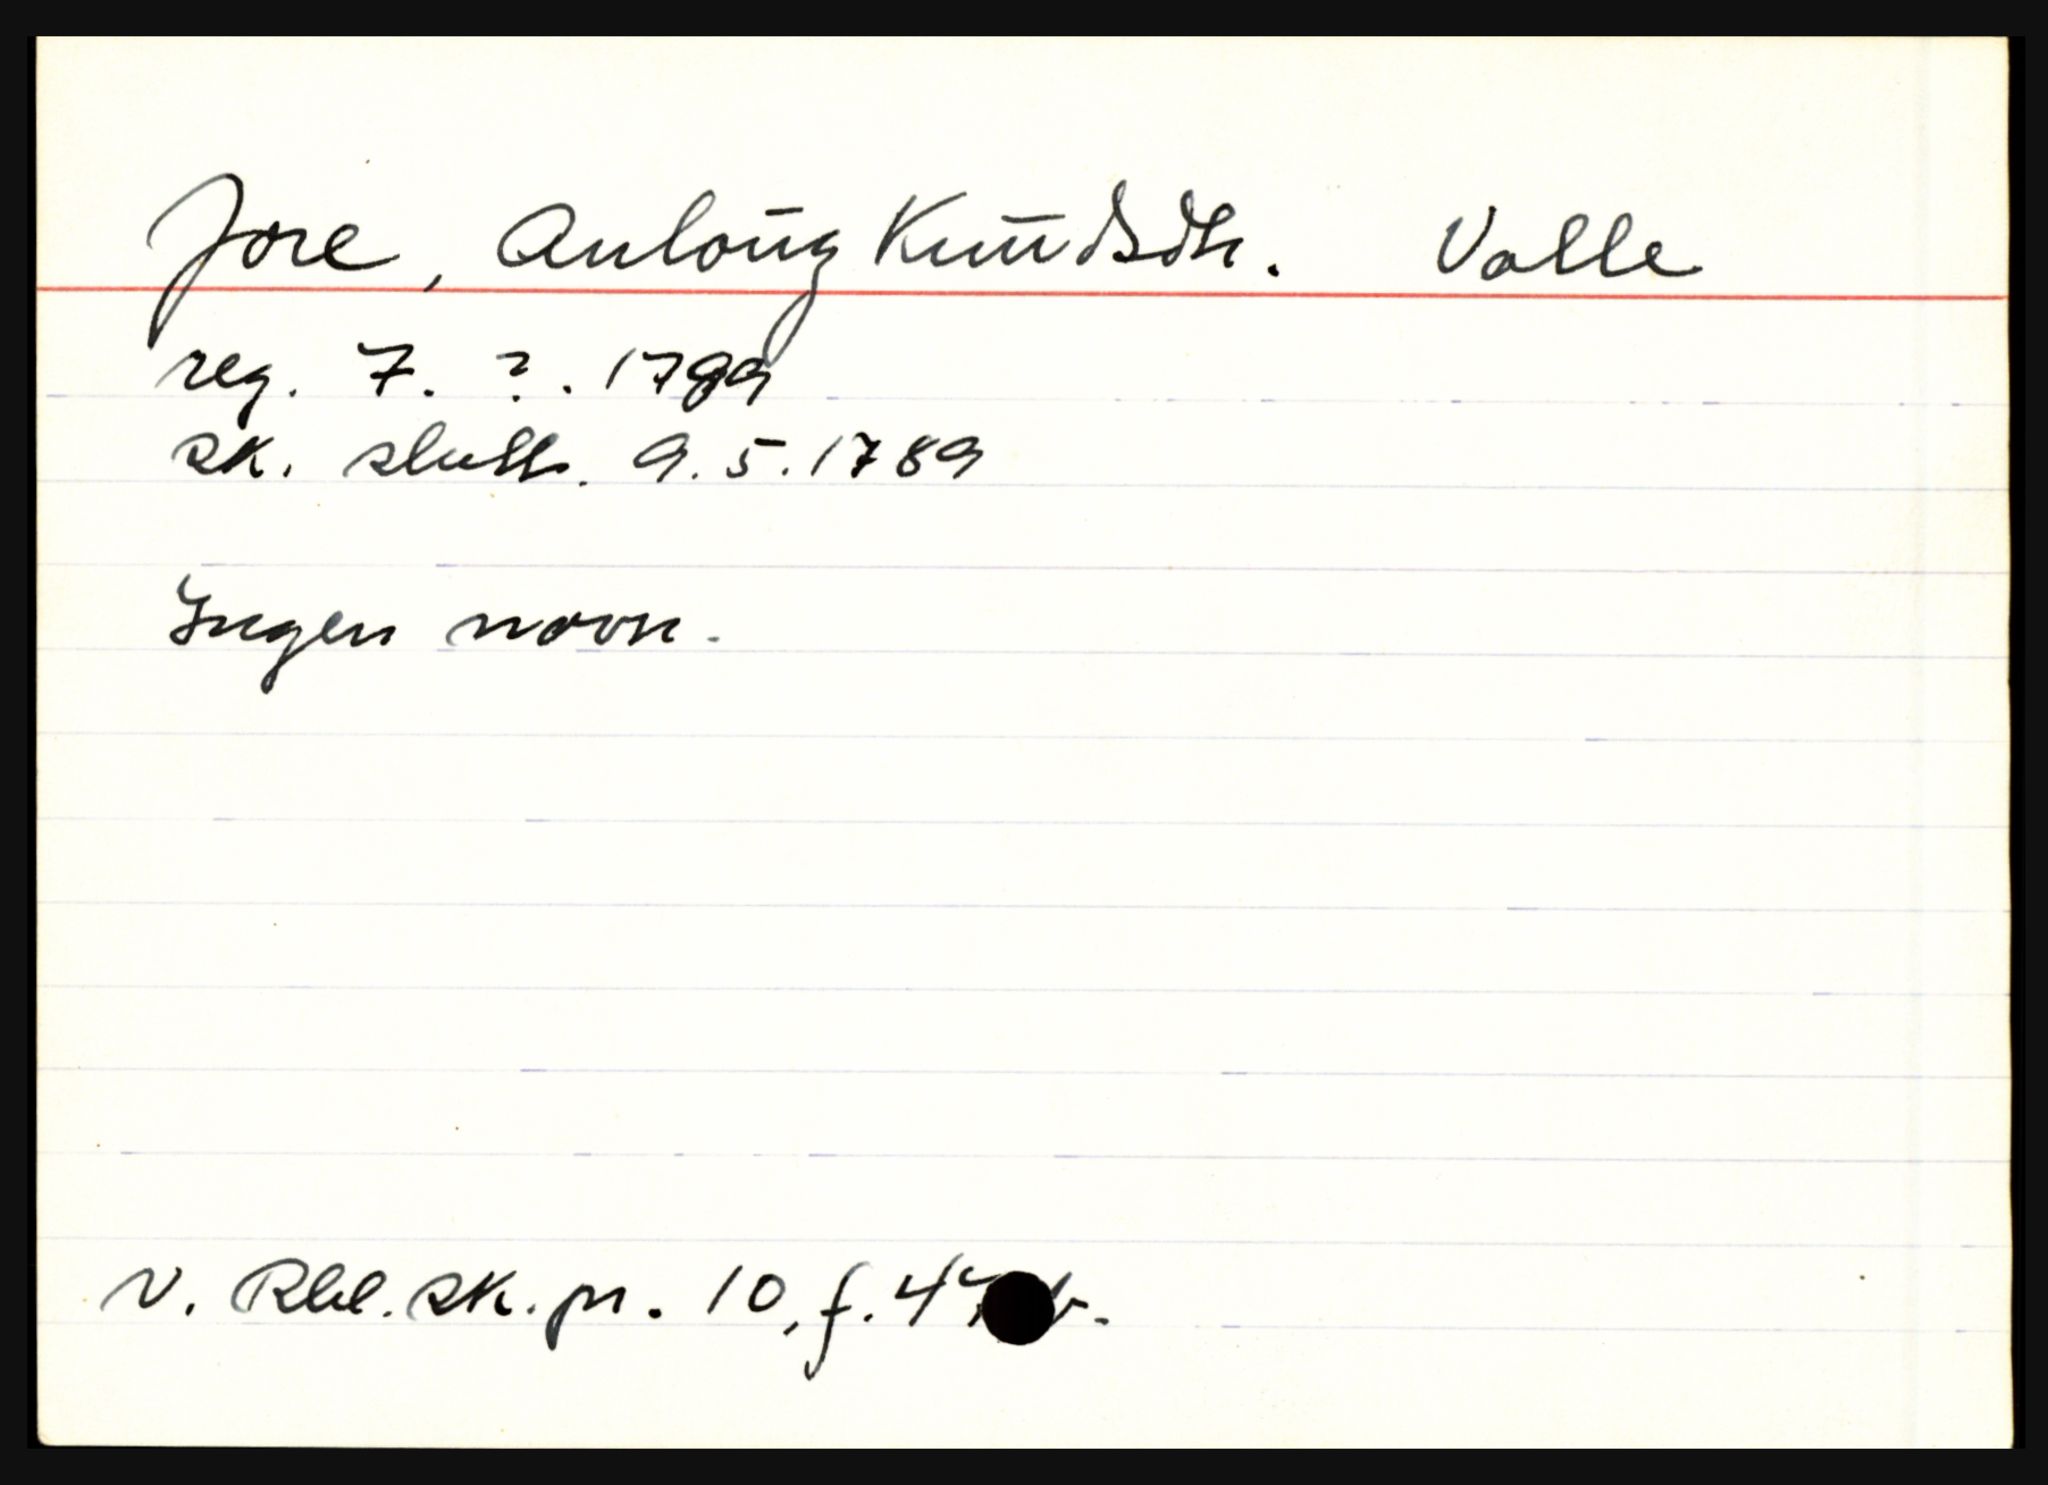 Jore, Anloug Knudsdtr. Valle
reg. 7. ?. 1789
sk. slutt. 9.5.1789
Ingen navn.
V. Rbl. sk. pr. 10, f.